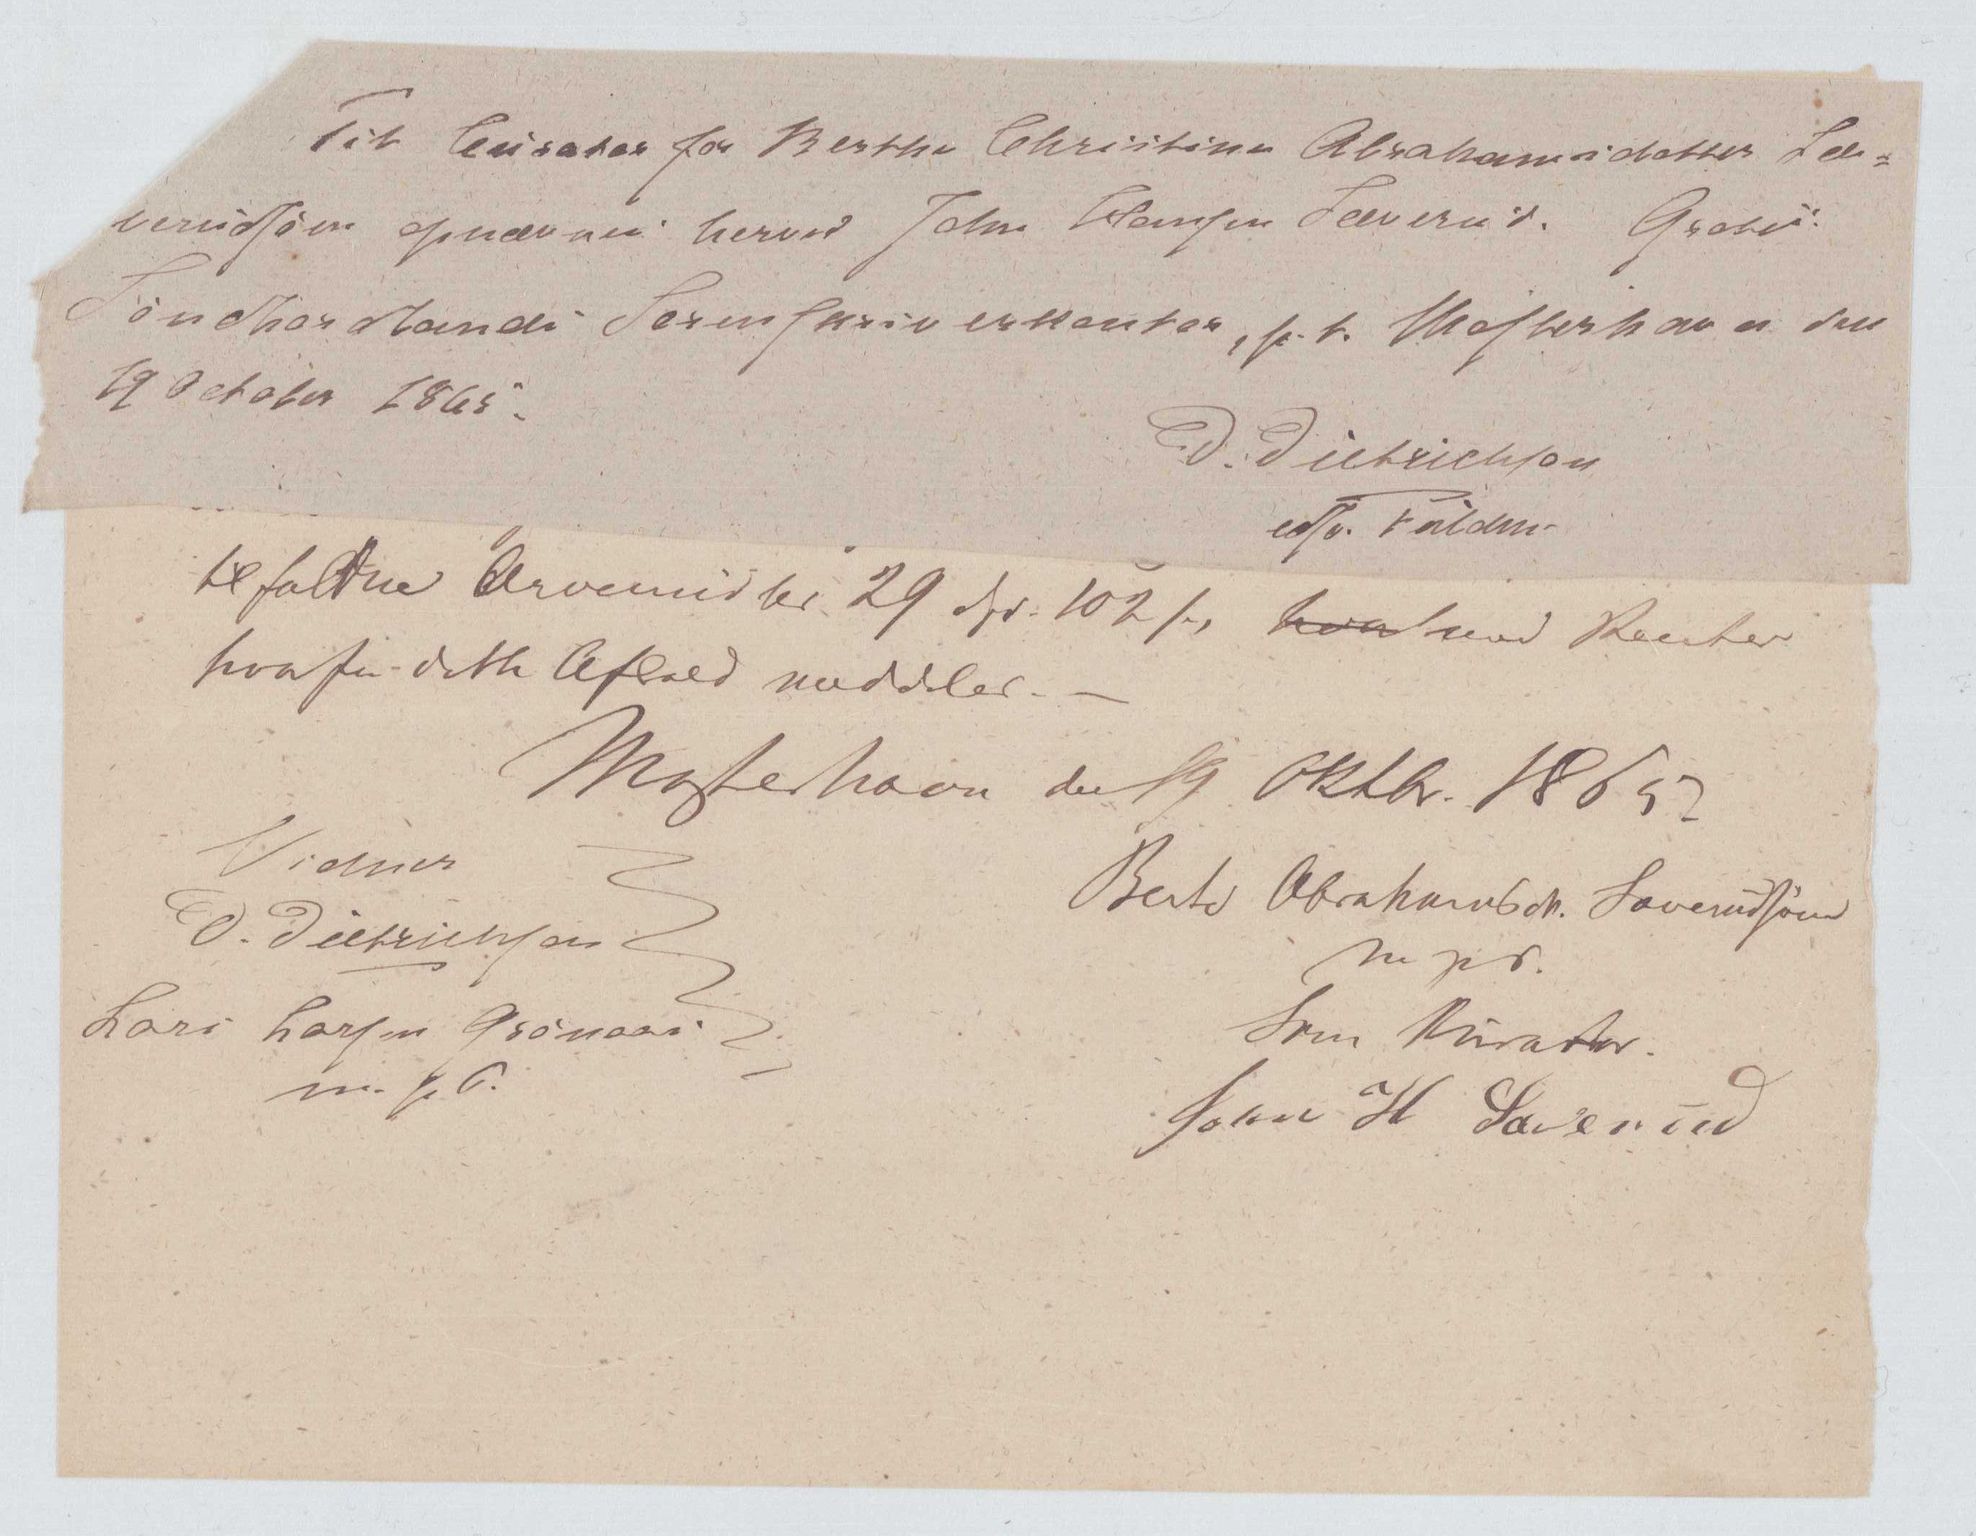 Til Curator for Berthe Christine Abrahamsdatter Læ=
verüdsöen opnævnes herved John Hansen Læverüd. Gratis.
Söndhordlands Sorenskriverkontor, p.t. Mosterhavn den
19 October 1865.
D. Dietrichson
edsv. Füldm.
tilfaldne Arvemidler 29 Spd. 102 s, med Renter
hvorfor dette Afkald meddeles. —
Mosterhavn den 19 Oktbr. 1865
Vidner
D. Dietrichson
Lars Larsen Grönaas
m. p. P.
Berte Abrahamsdtr. Laverüdsöen
m p P.
Som Kürator.
John H Laverüd